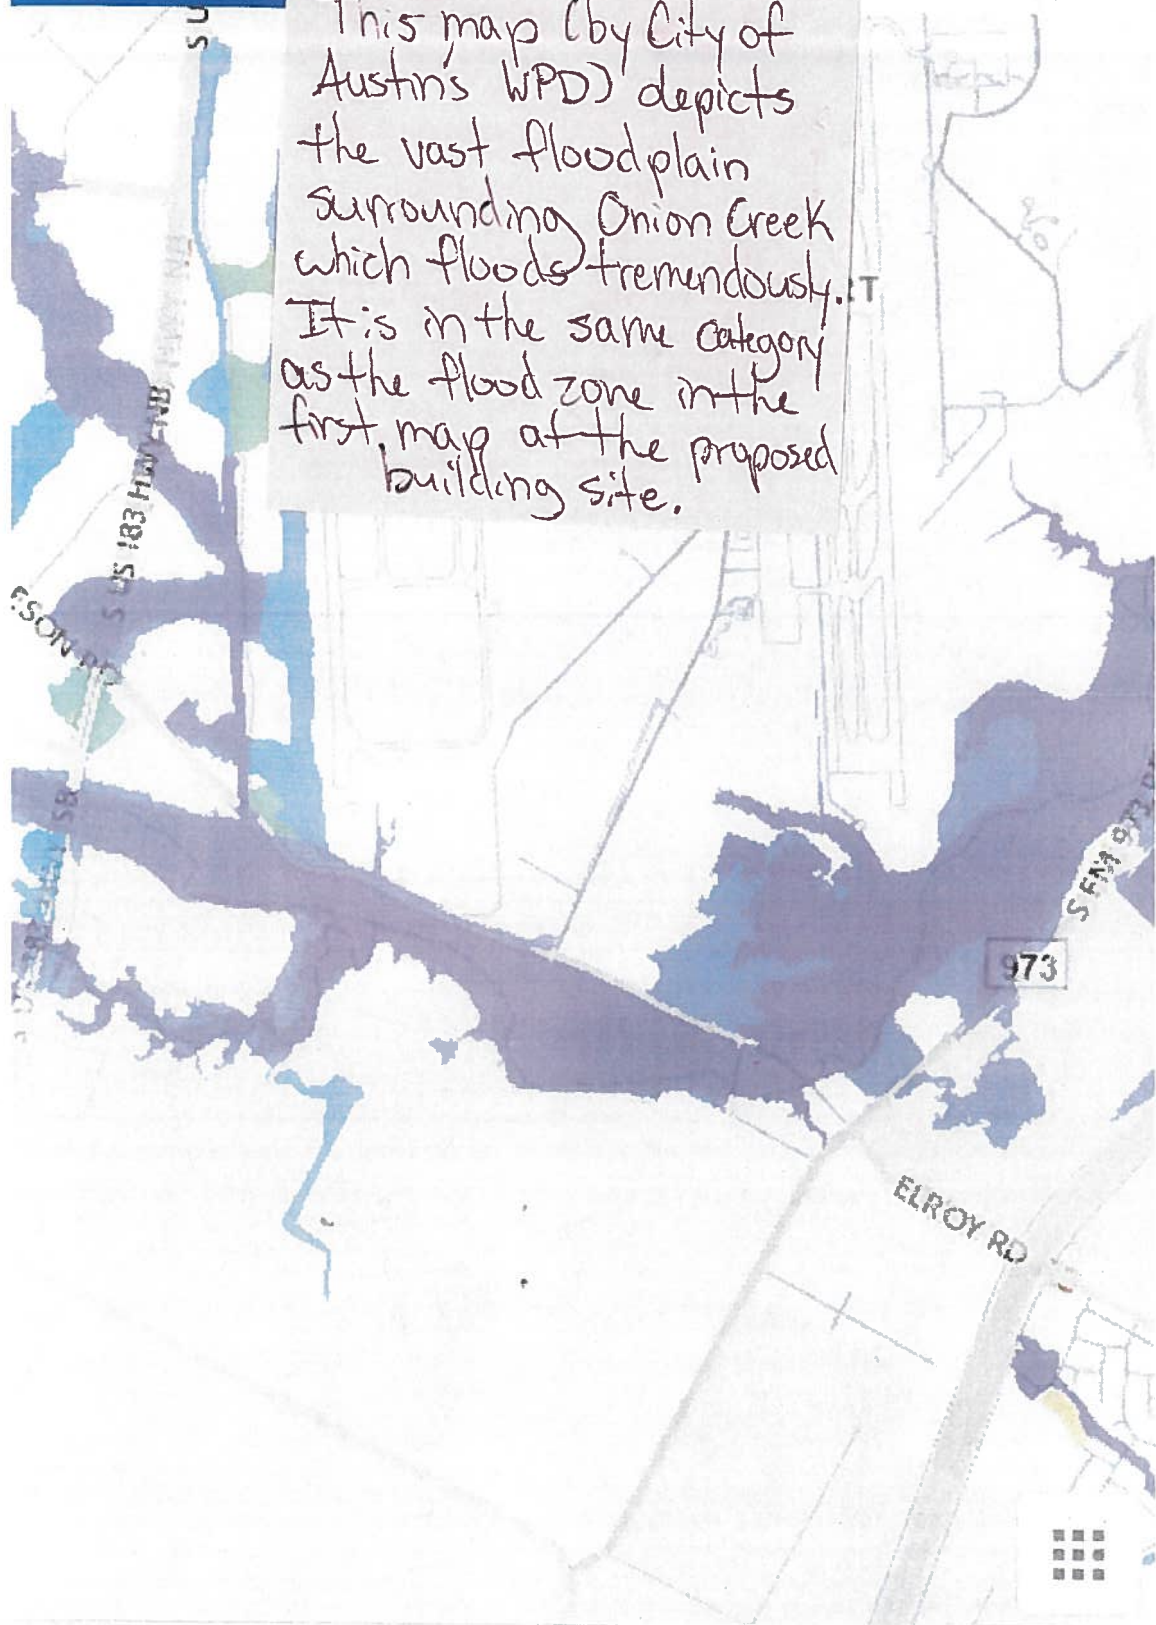 S U
This map (by City of
Austin's WPD) depicts
the vast floodplain
surrounding Onion Creek
which floods tremendously.
It is in the same category
as the flood zone in the
first map at the proposed
building site.
RT
S US 183 HWY NB
973
S FM 973 RD
ELROY RD